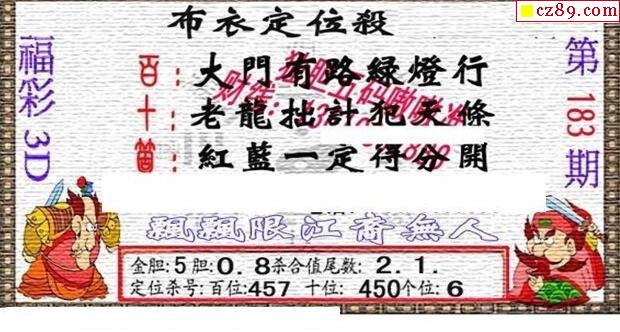 cz89.com
布衣定位殺
福彩3D
第183期
百：大門有路綠燈行
十：老龍拙計犯天條
個：紅藍一定得分開
飄飄限江裔無人
金胆:5胆:0.8杀合值尾数:2.1.
定位杀号:百位:457 十位:450个位:6